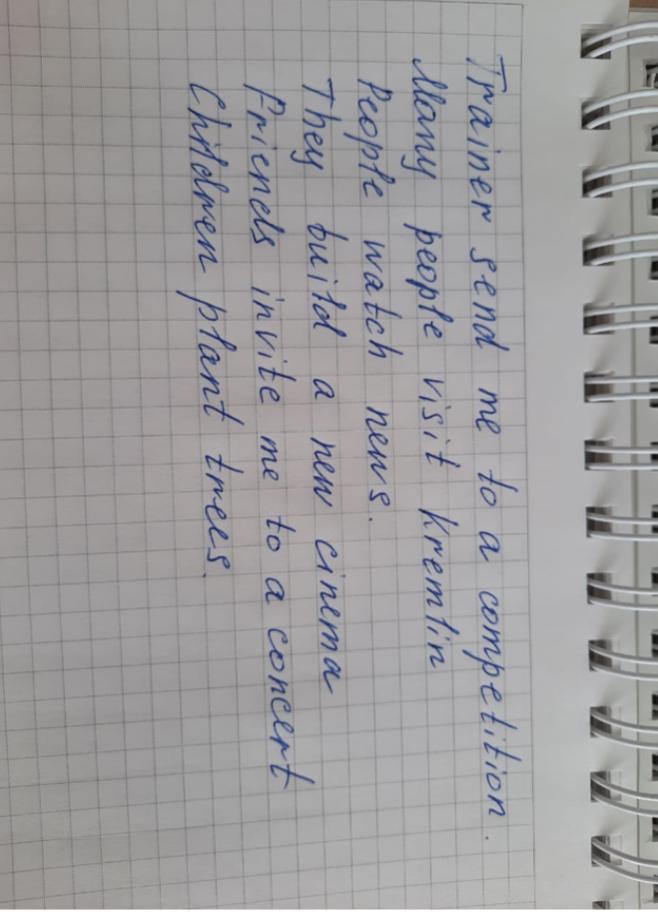 Trainer send me to a competition.
Many people visit Kremlin
People watch news.
They build a new cinema
Friends invite me to a concert
Children plant trees.